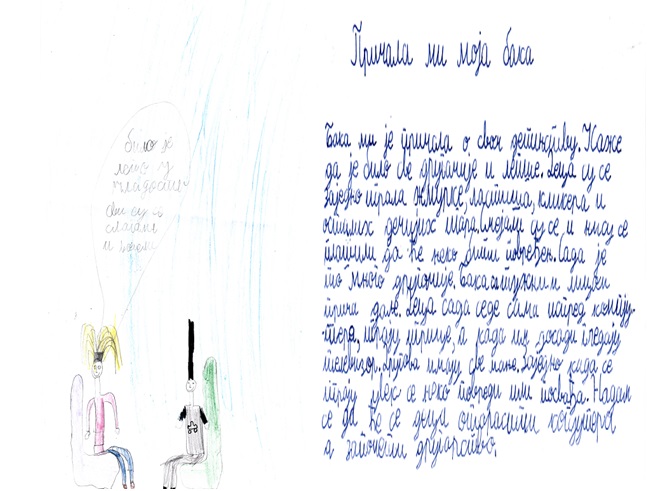 Причала ми моја бака
било је
лепо у
младости
сви су се
слагали
и
Бака ми је причала о свом детињству. Каже
да је било све другачије и лепше. Деца су се
заједно играла жмурке, ластиша, кликера и
осталих дечијих игара. Слагали су се и нису се
плашили да ће неко бити повређен. Сада је
то много другачије. Бака тужним лицем
прича даље. Деца сада седе сама испред компју-
тера, играју игрице, а када им досади гледају
телевизор. Лигова имају све мање. Заједно када се
играју увек се неко повреди или посвађа. Надам
се да ће се деца опростити компјутера
а започети другарство.